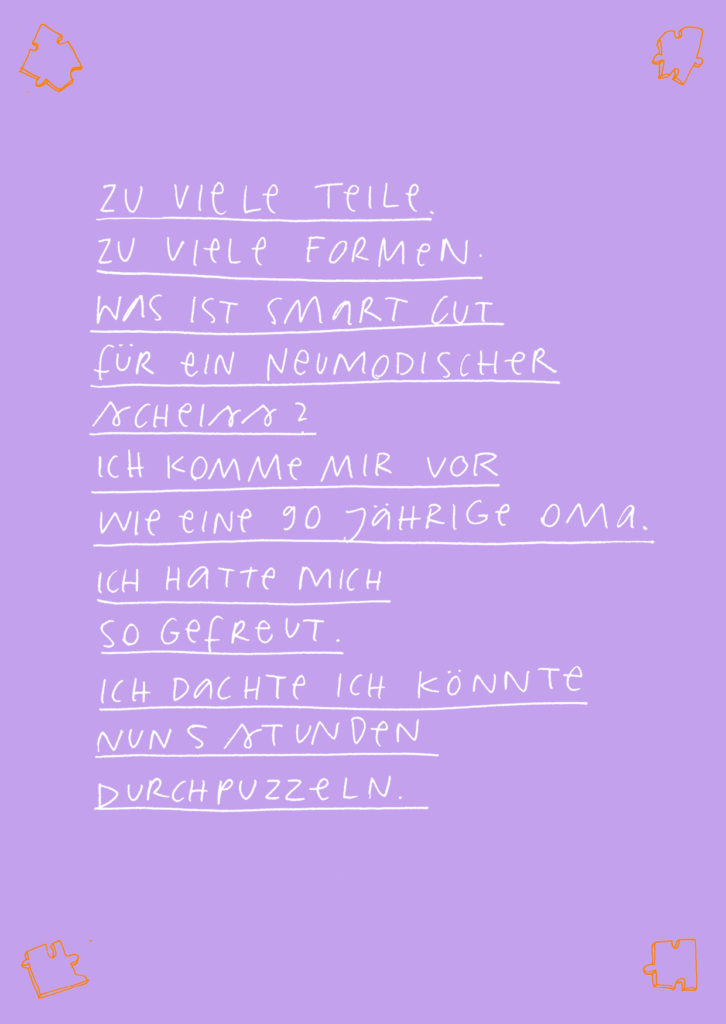 ZU VIELE TEILE.
ZU VIELE FORMEN.
WAS IST SMART CUT
FÜR EIN NEUMODISCHER
SCHEISS?
ICH KOMME MIR VOR
WIE EINE 90 JÄHRIGE OMA.
ICH HATTE MICH
SO GEFREUT.
ICH DACHTE ICH KÖNNTE
NUN 5 STUNDEN
DURCHPUZZELN.